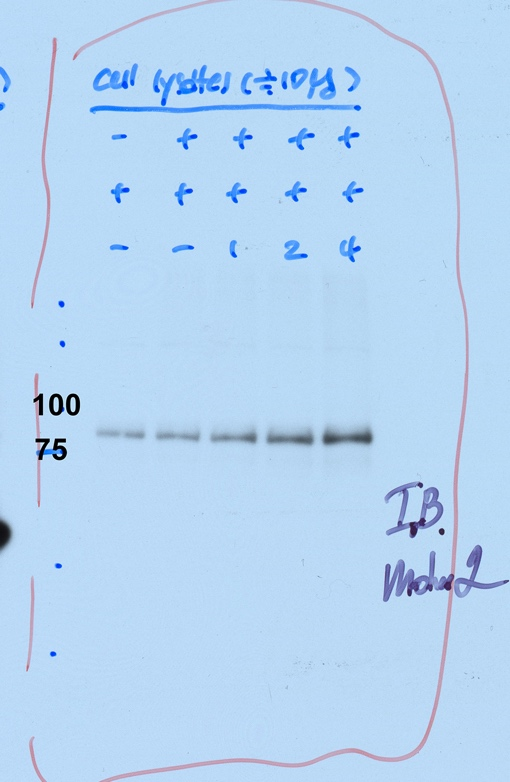 cell lysates (≒10μg)
- + + + +
+ + + + +
- - 1 2 4
100
75
I.B.
2